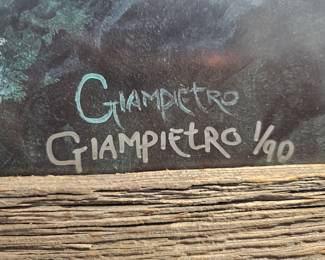 GIAMPIETRO
GIAMPIETRO 1/90